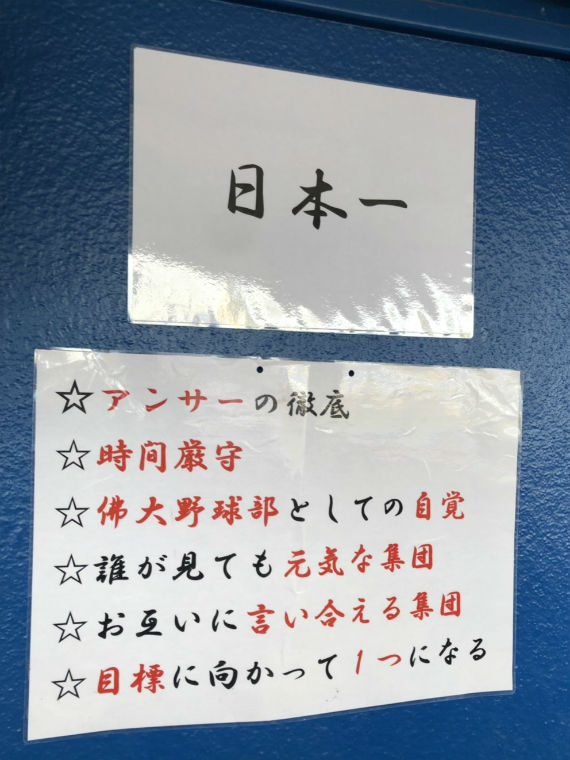 日本一
☆アンサーの徹底
☆時間厳守
☆佛大野球部としての自覚
☆誰が見ても元気な集団
☆お互いに言い合える集団
☆目標に向かって1つになる